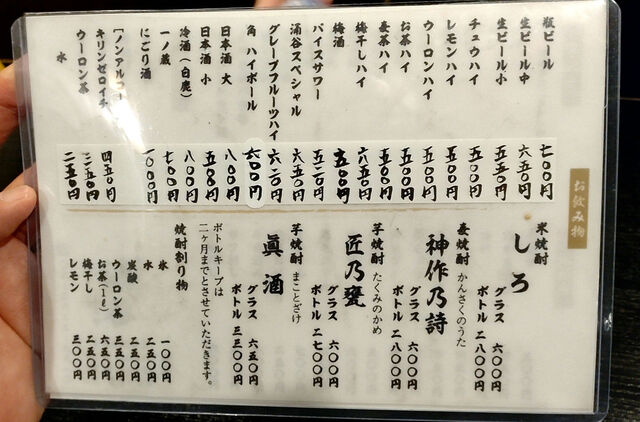 お飲み物
瓶ビール 七〇〇円
生ビール中 六五〇円
生ビール小 五五〇円
チュウハイ 五〇〇円
レモンハイ 五〇〇円
ウーロンハイ 五〇〇円
お茶ハイ 五〇〇円
麦茶ハイ 五〇〇円
梅干しハイ 六五〇円
梅酒 五〇〇円
バイスサワー 五二〇円
涌谷スペシャル 六五〇円
グレープフルーツハイ 六二〇円
角 ハイボール 六〇〇円
日本酒 大 八〇〇円
日本酒 小 五〇〇円
冷酒(白鹿) 八〇〇円
一ノ蔵 七〇〇円
にごり酒 一〇〇〇円
[ノンアルコー
キリンゼロイチ 四五〇円
ウーロン茶 三五〇円
水 二五〇円
米焼酎
しろ
グラス 六〇〇円
ボトル 二八〇〇円
麦焼酎 かんさくのうた
神作乃詩
グラス 六〇〇円
ボトル 二八〇〇円
芋焼酎 たくみのかめ
匠乃甕
グラス 六〇〇円
ボトル 二七〇〇円
芋焼酎 まことざけ
眞酒
グラス 六五〇円
ボトル 三三〇〇円
ボトルキープは
二ヶ月までとさせていただきます。
焼酎割り物
氷 一〇〇円
水 二五〇円
炭酸 二五〇円
ウーロン茶 三五〇円
お茶(1ℓ) 六五〇円
梅干し 二五〇円
レモン 三〇〇円